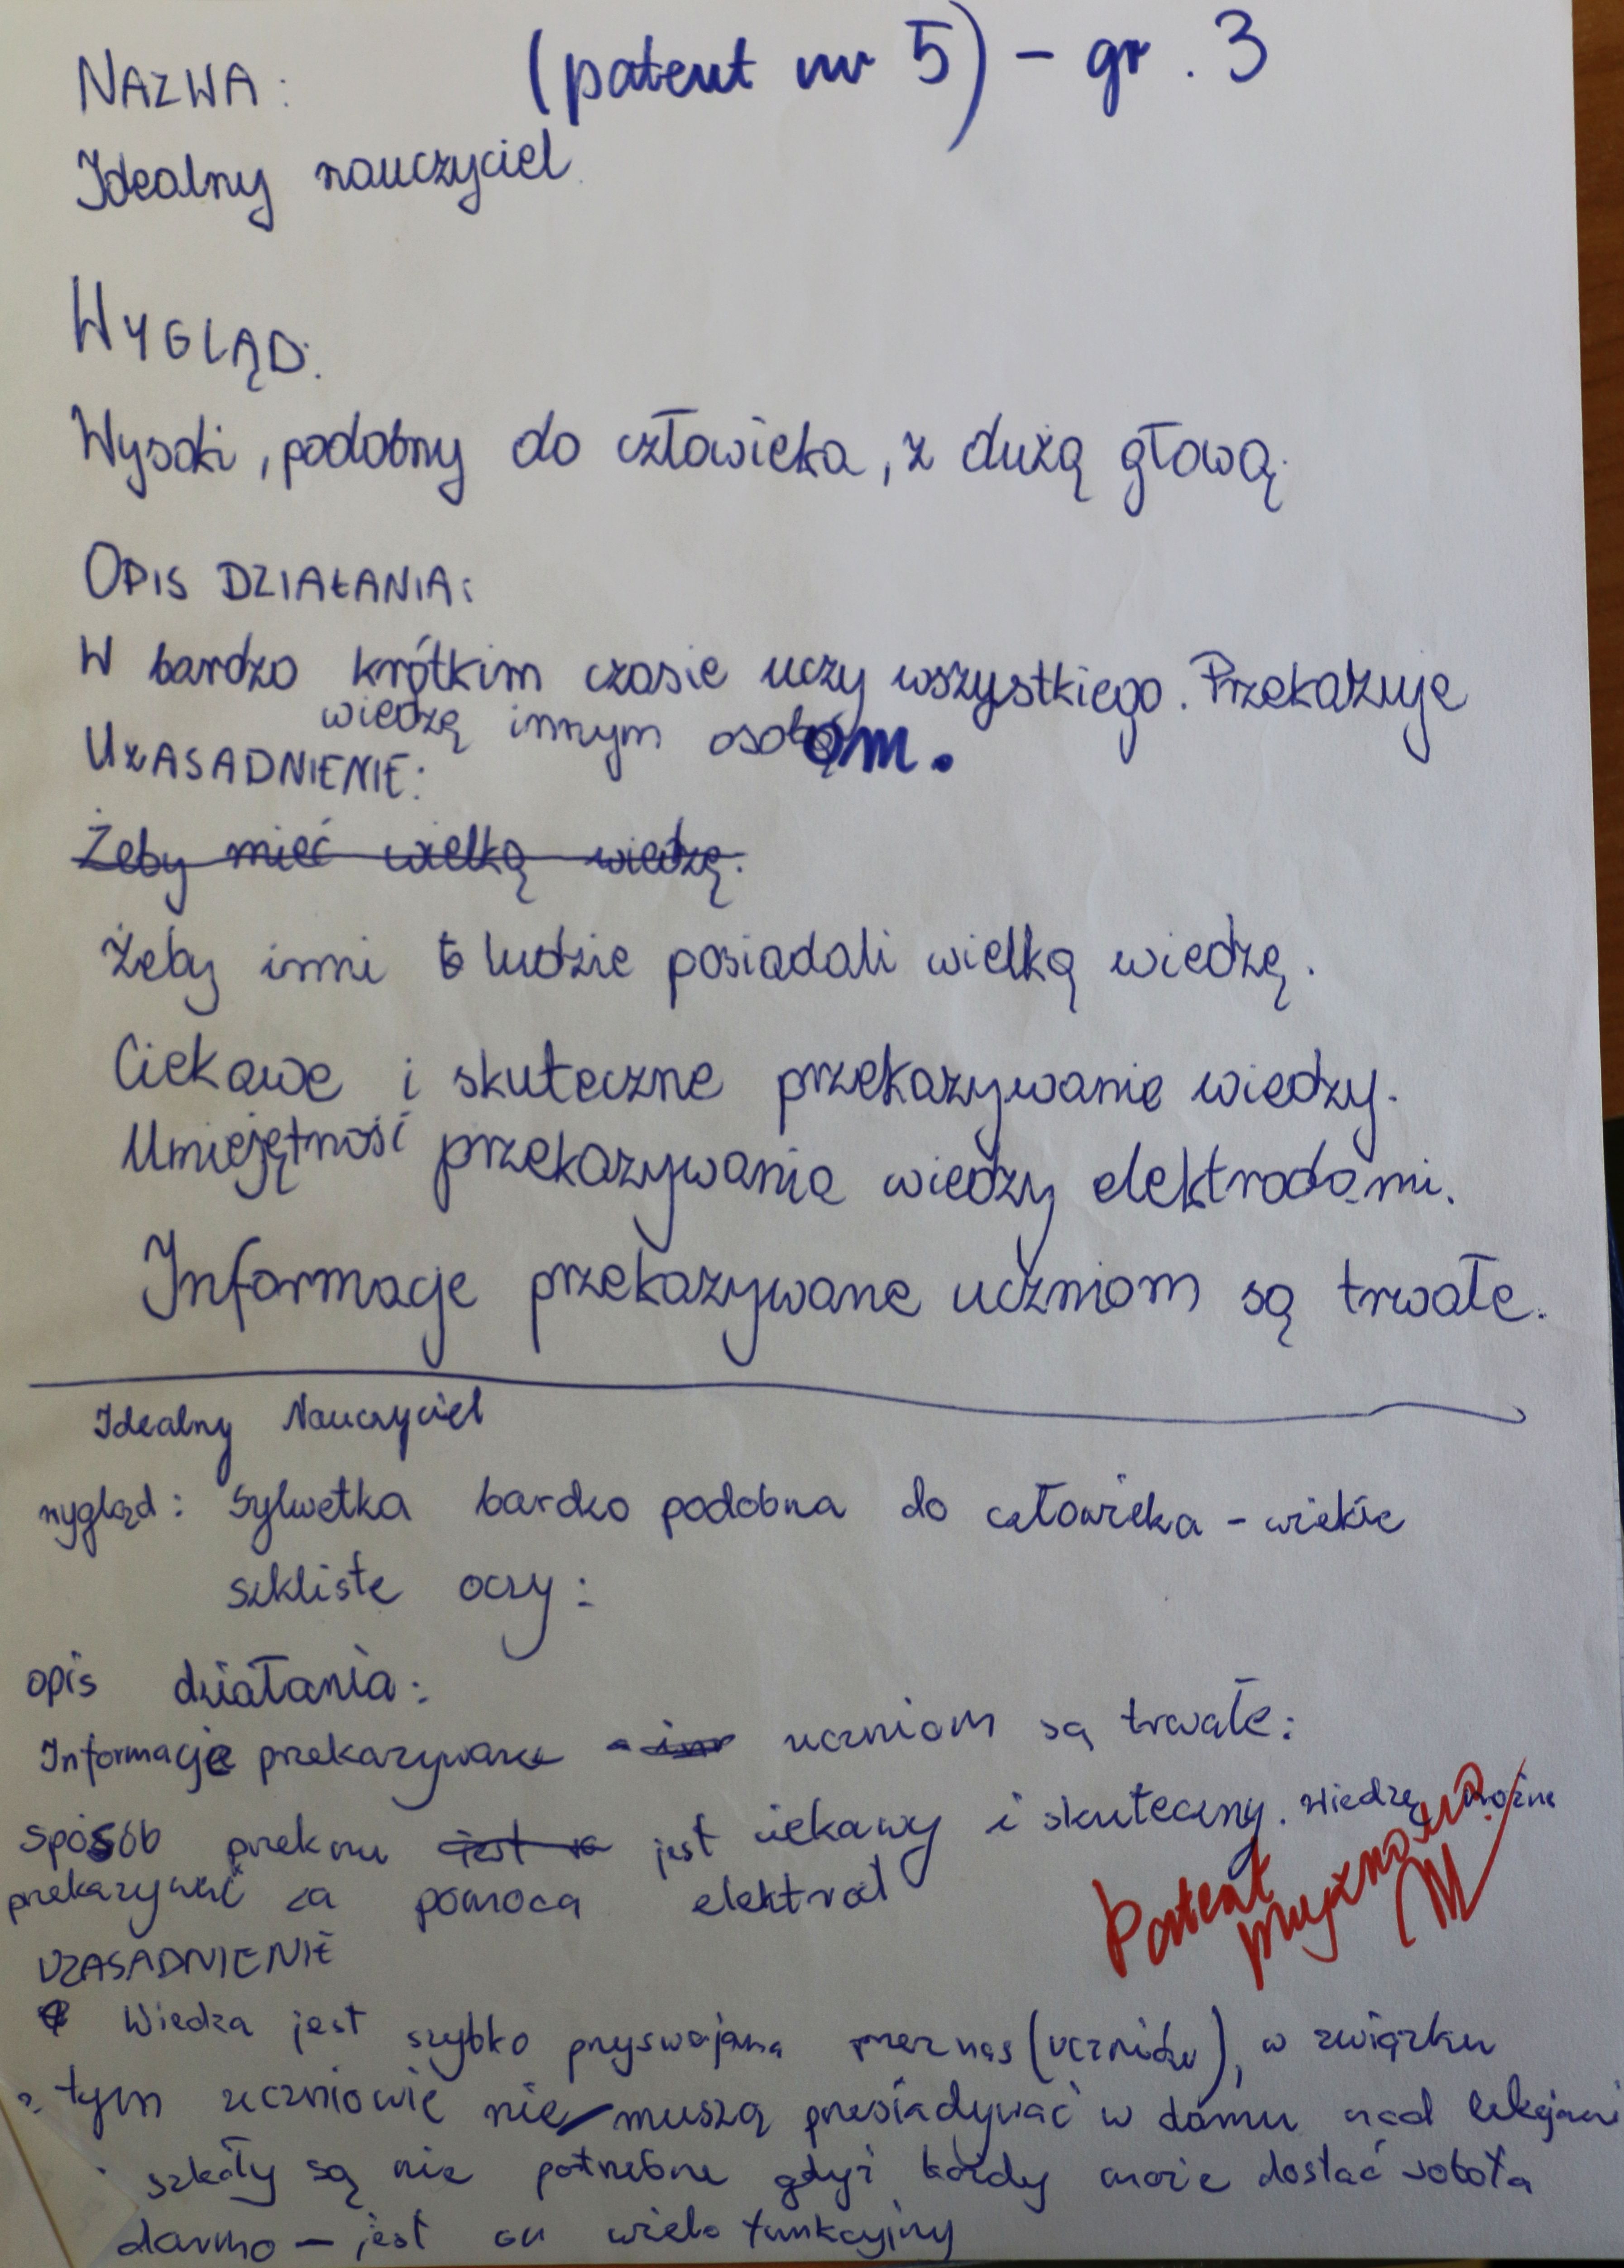 NAZWA: (patent nr 5) - gr. 3
Idealny nauczyciel
WYGLĄD:
Wysoki, podobny do człowieka, z dużą głową.
OPIS DZIAŁANIA:
W bardzo krótkim czasie uczy wszystkiego. Przekazuje
wiedzę innym osobom.
UZASADNIENIE:
Żeby mieć wielką wiedzę.
Żeby inni ludzie posiadali wielką wiedzę.
Ciekawe i skuteczne przekazywanie wiedzy.
Umiejętność przekazywania wiedzy elektrodami.
Informacje przekazywane uczniom są trwałe.
Idealny Nauczyciel
wygląd: Sylwetka bardzo podobna do człowieka - wiekie
szkliste oczy:
opis działania:
Informacje przekazywane uczniom są trwałe:
sposób przekazu jest ciekawy i skuteczny. Wiedzę można
przekazywać za pomoca elektrod
Patent
przyznano
UZASADNIENIE
Wiedza jest szybko przyswajana przez nas (uczniów), w związku
z tym uczniowie nie muszą przesiadywać w domu nad lekcjami
i szkoły są nie potrzebne gdyż każdy może dostać robota
darmo - jest on wielo funkcyjny